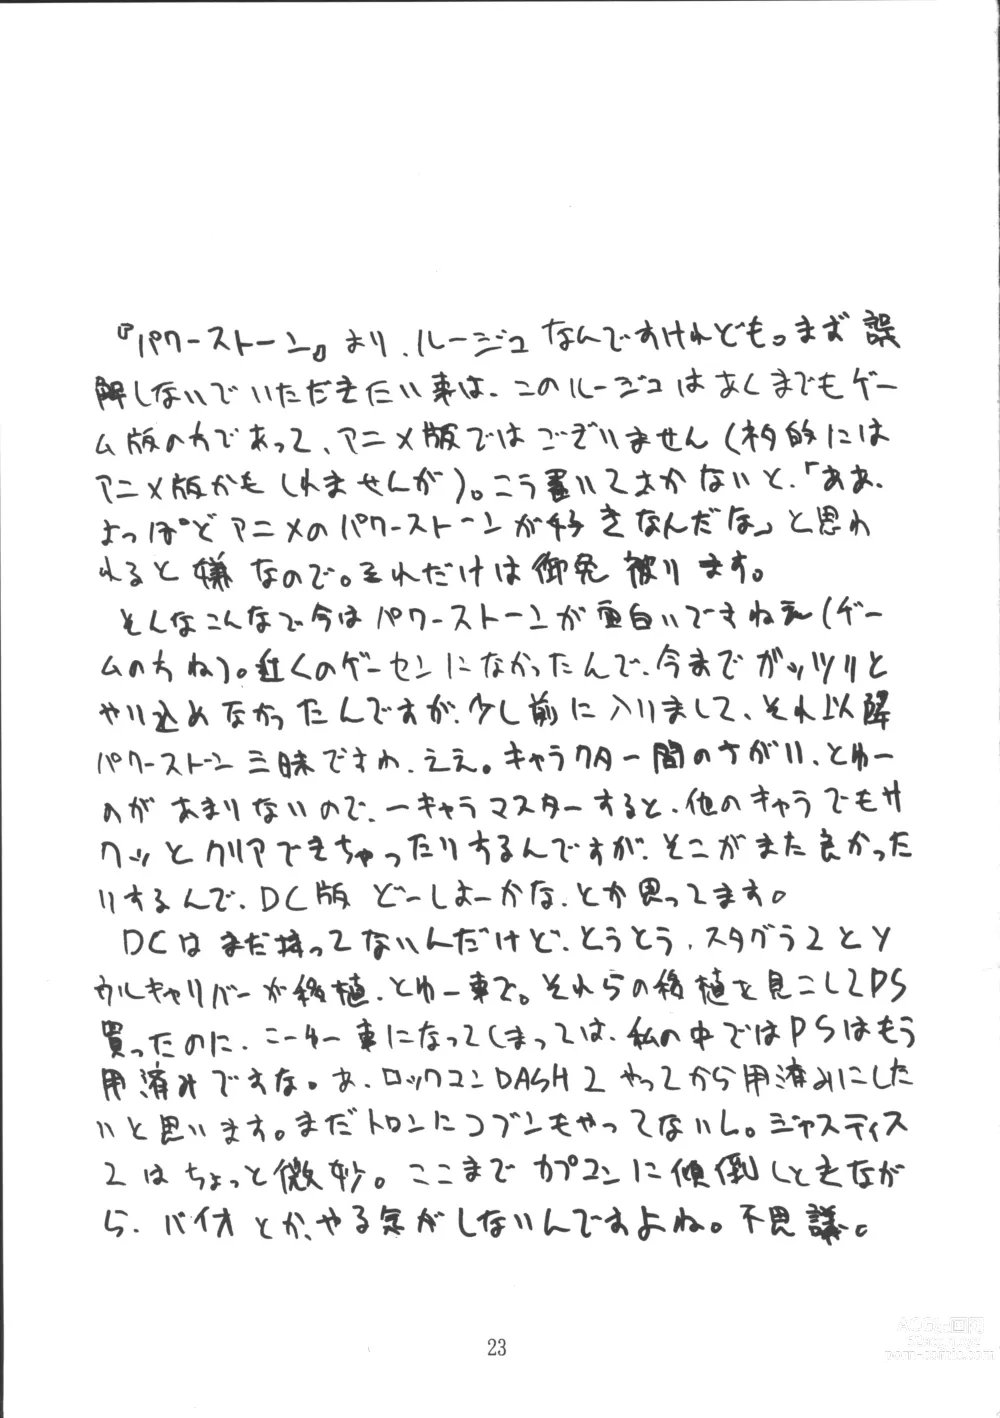 『パワーストーン』より、ルージュなんですけれども。まず誤
解しないでいただきたい事は、このルージュはあくまでもゲー
ム版の方であって、アニメ版ではございません(ネタ的には
アニメ版かもしれませんが)。こう書いておかないと、「ああ、
よっぽどアニメのパワーストーンが好きなんだな」と思わ
れると嫌なので。それだけは御免被ります。
そんなこんなで今はパワーストーンが面白いですねえ(ゲー
ムの方ね)。近くのゲーセンになかったんで、今までガッツリと
やり込めなかったんですが、少し前に入りまして、それ以降
パワーストーン三昧ですわ、ええ。キャラクター間のさがり、とゆー
のがあまりないので、一キャラマスターすると、他のキャラでもサ
クッとクリアできちゃったりするんですが、そこがまた良かった
りするんで、DC版どーしよーかな、とか思ってます。
DCはまだ持ってないんだけど、とうとう、スタグラ2とソ
ウルキャリバーが移植、とゆー事で。それらの移植を見こしてPS
買ったのに、こーゆー事になってしまっては、私の中ではPSはもう
用済みですな。あ、ロックマンDASH2やってから用済みにした
いと思います。まだトロンにコブンもやってないし。ジャスティス
2はちょっと微妙。ここまでカプコンに傾倒しときなが
ら、バイオとか、やる気がしないんですよね。不思議。
23